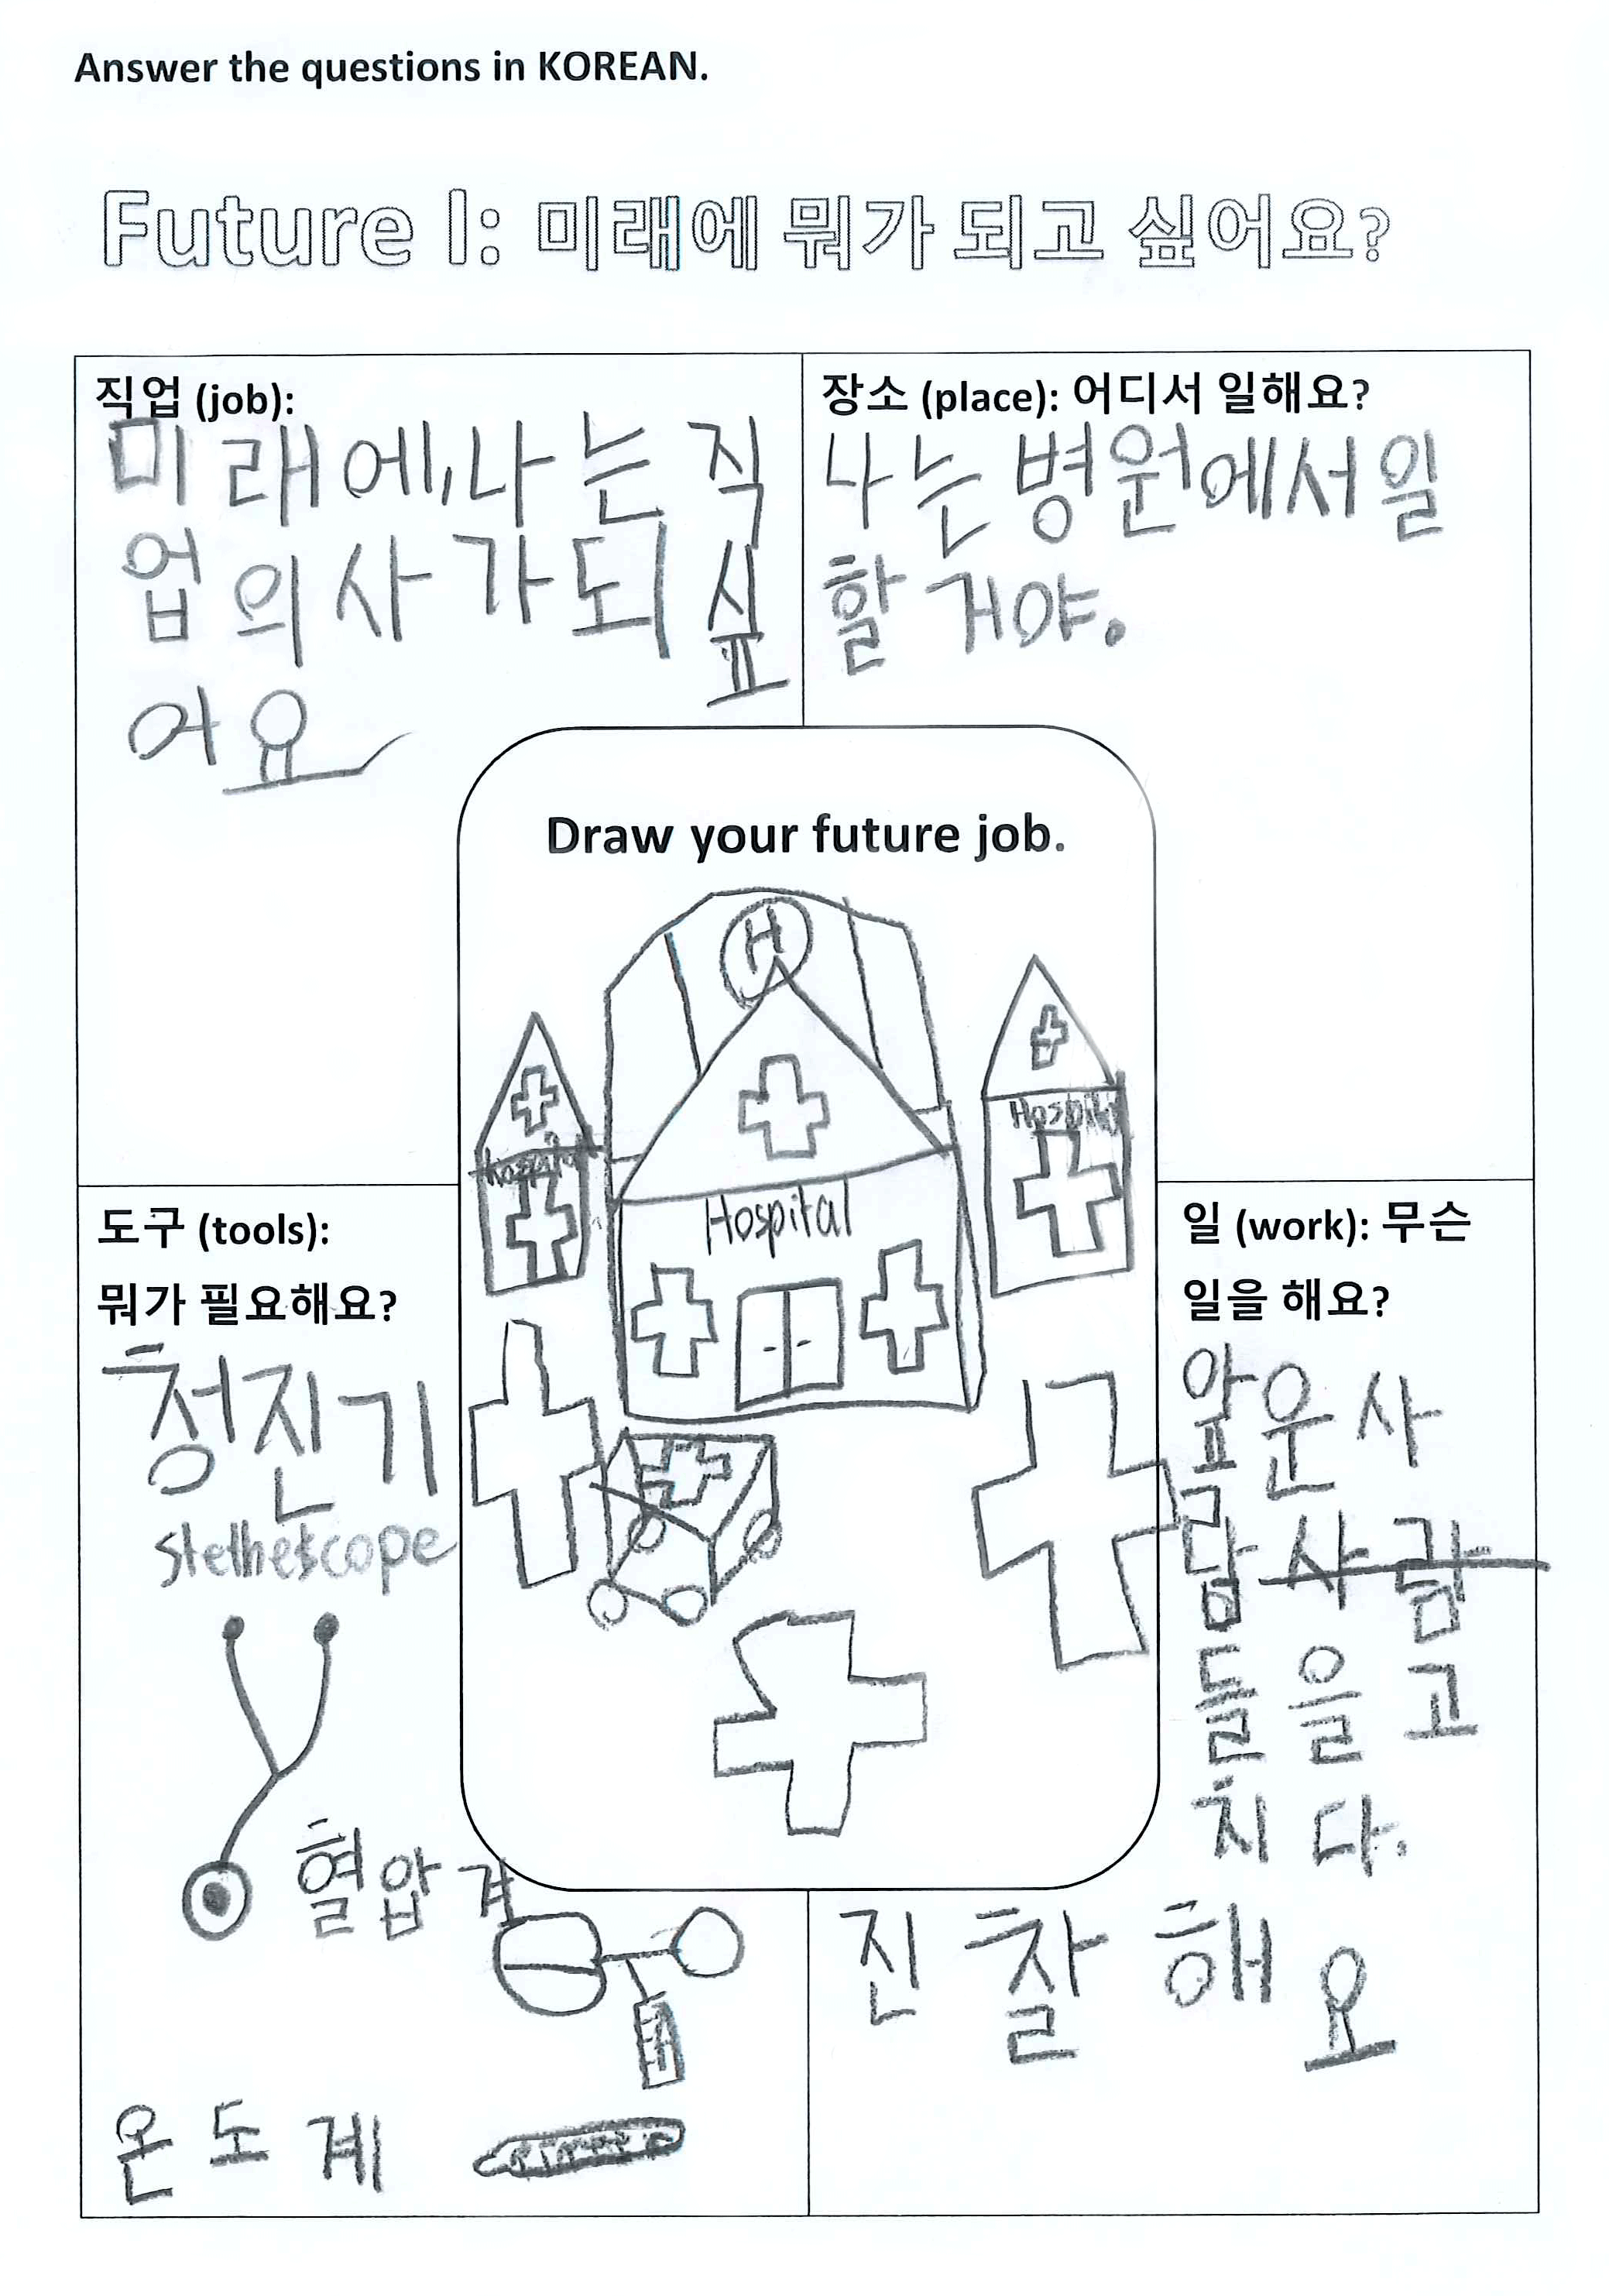 Answer the questions in KOREAN.
Future I: 미래에 뭐가 되고 싶어요?
직업 (job):
미래에, 나는 직
업 의사가 되 싶
어요
장소 (place): 어디서 일해요?
나는 병원에서 일
할 거야.
Draw your future job.
H
Hospital
Hospital
Hospital
도구 (tools):
뭐가 필요해요?
청진기
stethescope
혈압계
온도계
일 (work): 무슨
일을 해요?
앞운 사
람 사람
들을 고
치다.
진찰해요